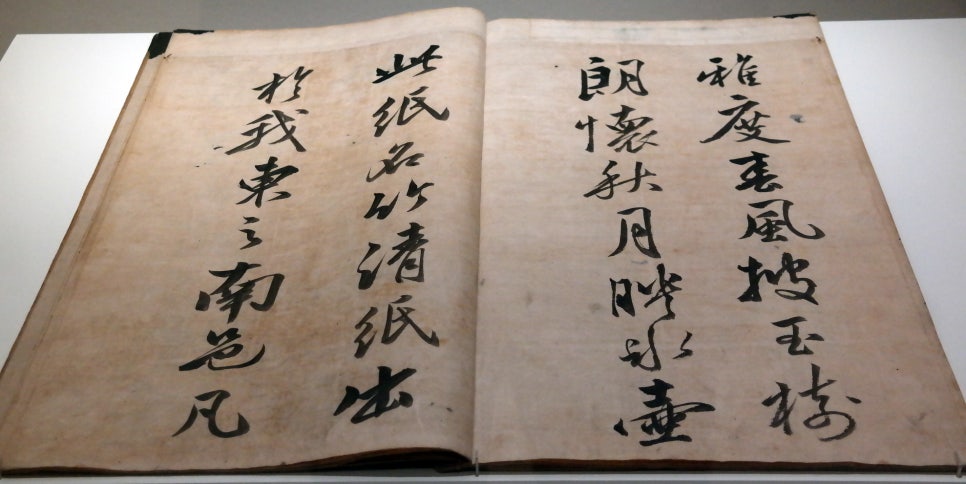 雅度春風披玉樹
朗懷秋月映氷壺
此紙名竹清紙出
於我東之南邑凡